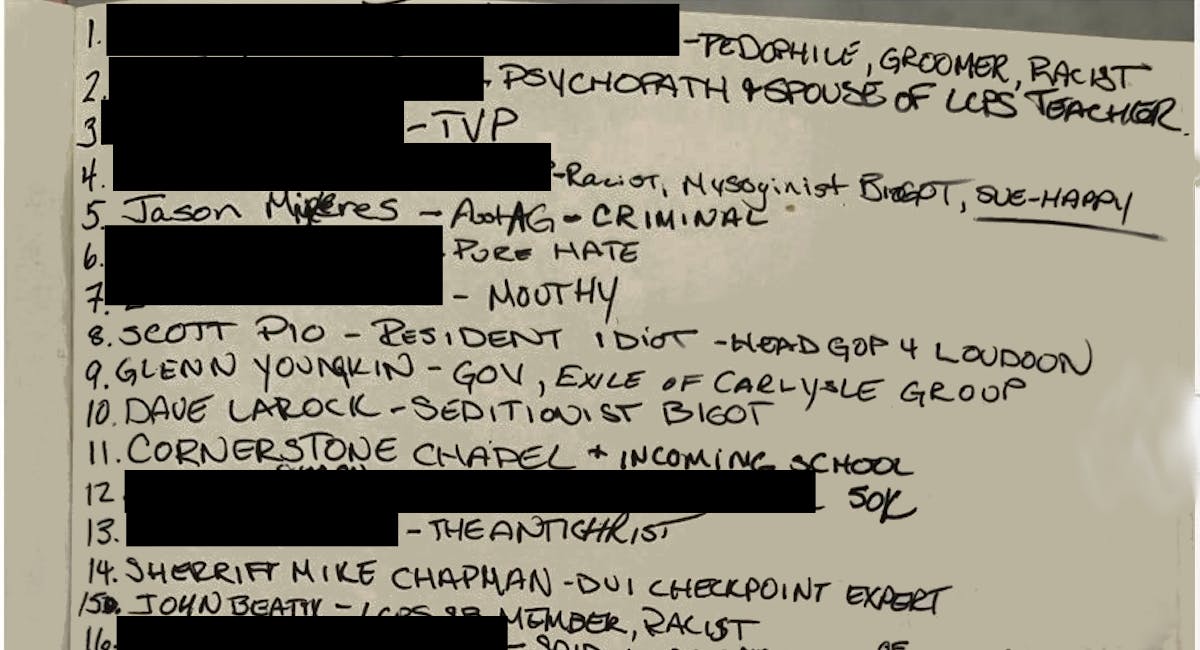 1. -PEDOPHILE, GROOMER, RACIST
2. - PSYCHOPATH & SPOUSE OF LCPS TEACHER.
3 - TVP
4. -Racist, Mysoginist BIGOT, SUE-HAPPY
5 Jason Miyares - AG - CRIMINAL
6. - PURE HATE
7. - MOUTHY
8. SCOTT PIO - RESIDENT IDIOT - HEAD GOP 4 LOUDOON
9. GLENN YOUNGKIN - GOV, EXILE OF CARLYSLE GROUP
10. DAVE LAROCK - SEDITIONIST BIGOT
11. CORNERSTONE CHAPEL + INCOMING SCHOOL
12 50K
13. - THE ANTICHRIST
14. SHERRIFF MIKE CHAPMAN - DUI CHECKPOINT EXPERT
15. JOHN BEATTY - LCPS MEMBER, RACIST
16.